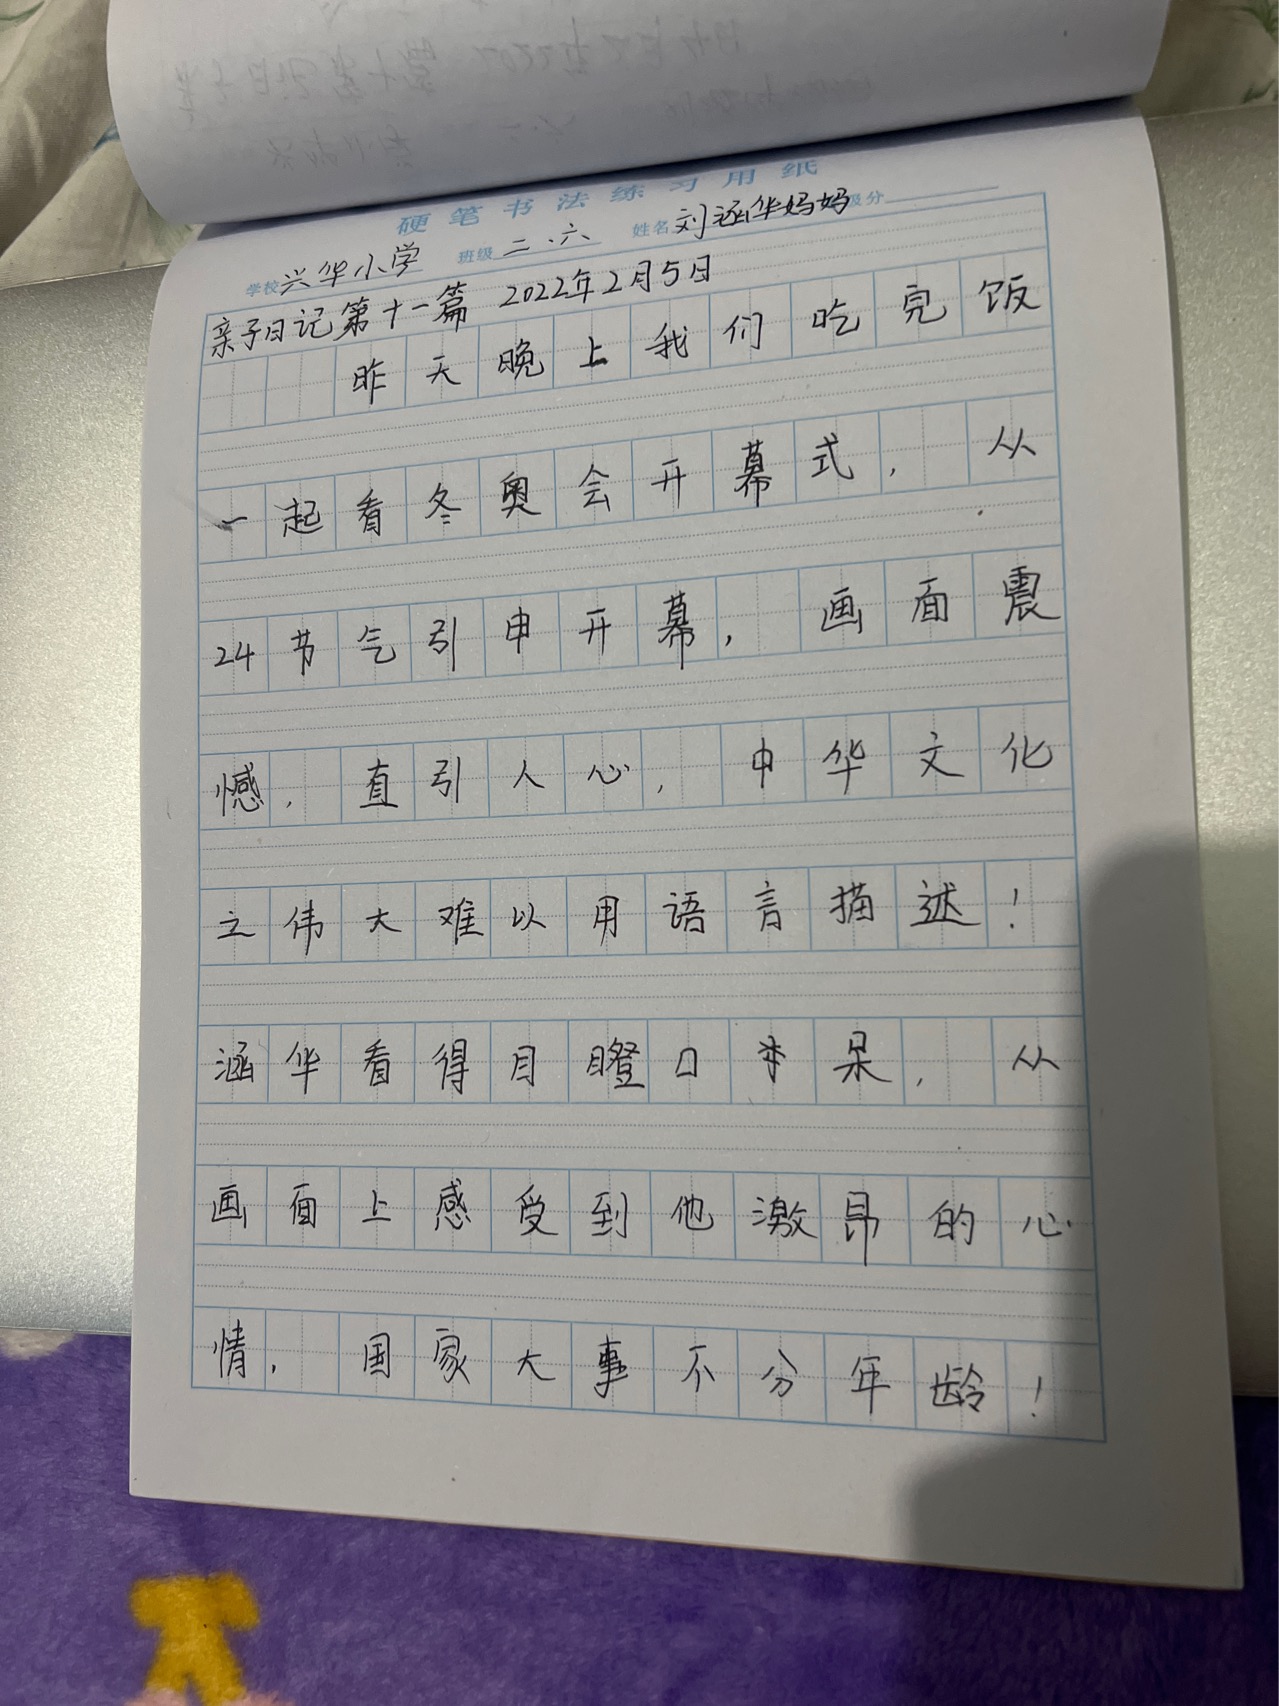 硬笔书法练习用纸
学校 兴华小学 班级 二.六 姓名 刘涵华妈妈 级分
亲子日记第十一篇 2022年2月5日
昨天晚上我们吃完饭
一起看冬奥会开幕式，从
24节气引申开幕，画面震
憾，直引人心，中华文化
之伟大难以用语言描述！
涵华看得目瞪口呆，从
画面上感受到他激昂的心
情，国家大事不分年龄！